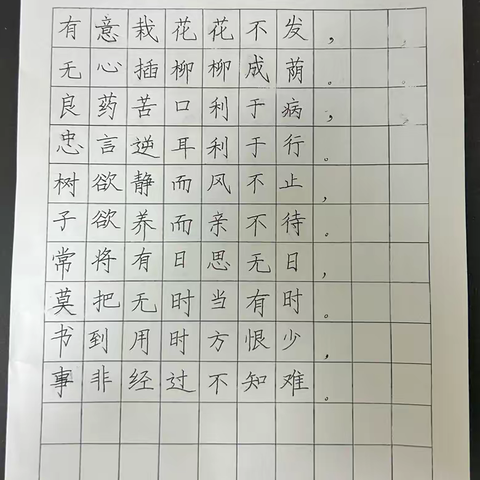 有意栽花花不发，
无心插柳柳成荫。
良药苦口利于病，
忠言逆耳利于行。
树欲静而风不止，
子欲养而亲不待。
常将有日思无日，
莫把无时当有时。
书到用时方恨少，
事非经过不知难。